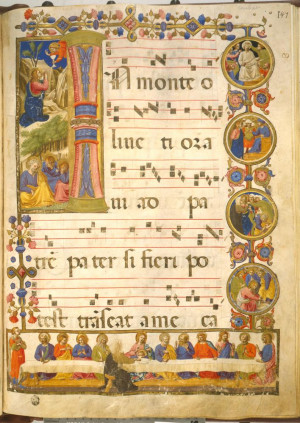 IN monte o
liue ti ora
ui ad pa
trē pa ter si fieri po
test trāseat a me ca